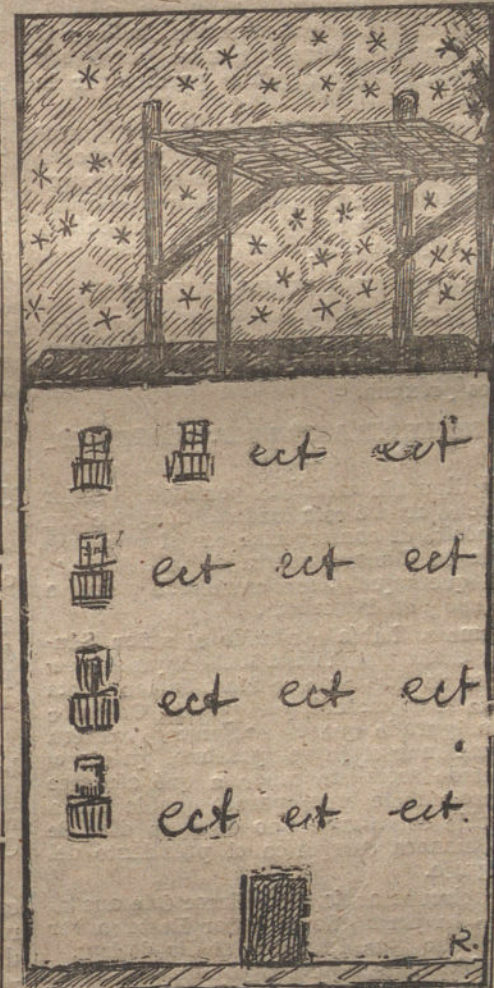 ect ect
ect ect ect
ect ect ect
ect ect ect.
R.